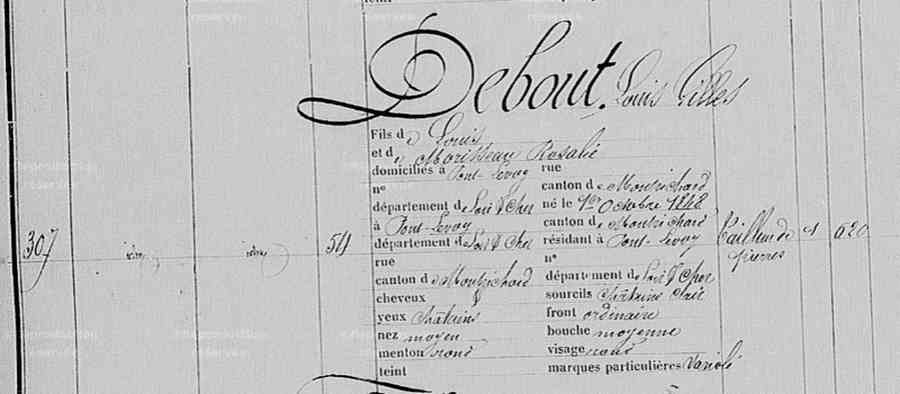 Debout. Louis Gilles
Fils de Louis
et de Morisseau Rosalie
domiciliés à Pont-Levoy rue
n° canton de Montrichard
département de Loir & Cher né le 1er Octobre 1848
à Pont-Levoy canton de Montrichard
307 idem idem 511 département de Loir & Cher résidant à Pont-Levoy Tailleur de 1 620
rue n° pierres
canton de Montrichard département de Loir & Cher
cheveux sourcils châtains clair
yeux châtains front ordinaire
nez moyen bouche moyenne
menton rond visage rond
teint marques particulières Variolé